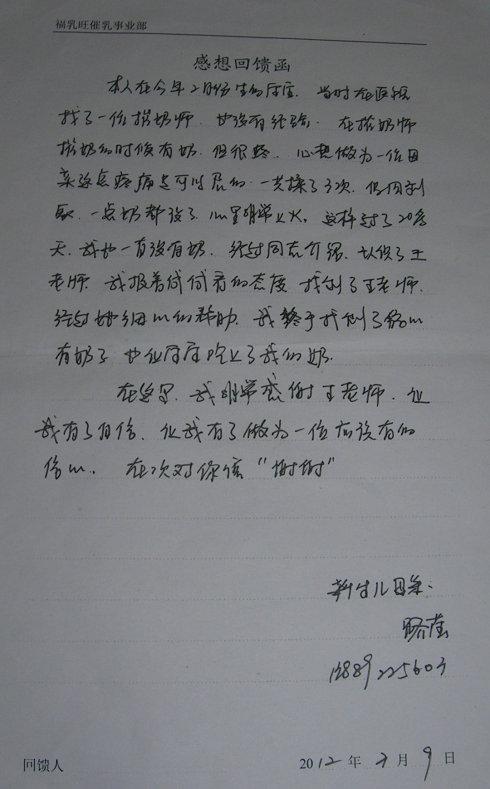 福乳旺催乳事业部
感想回馈函
本人在今年2月份生的宝宝. 当时在医院
找了一位揉奶师. 也没有经验. 在揉奶师
揉奶的时候有奶. 但很疼. 心想做为一位母
亲这点疼痛是可以忍的. 一共揉了3次. 但回到
家. 一点奶都没了. 心里非常上火. 这样过了20多
天. 我也一直没有奶. 经过同志介绍. 认识了王
老师. 我报着试试看的态度 找到了王老师.
经过她细心的帮助. 我终于找到了信心
有奶了 也让宝宝吃上了我的奶.
在这里. 我非常感谢王老师. 让
我有了自信. 让我有了做为一位应该有的
信心. 在次对你说 “谢谢”
新生儿母亲.
13889225603
回馈人 2012年3月9日